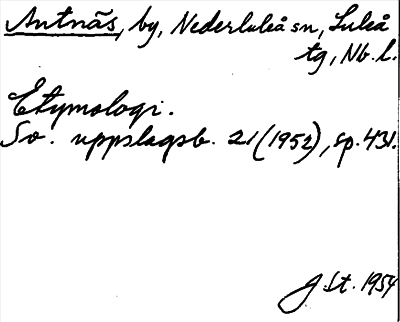 Antnäs, by, Nederluleå sn, Luleå
tg, Nb. l.
Etymologi.
Sv. uppslagsb. 21 (1952), sp. 431.
J. St. 1954